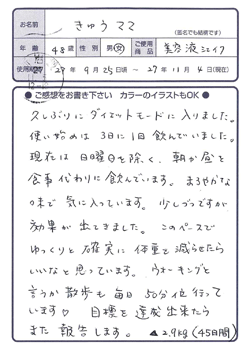 お名前 きゅうママ
(匿名でも結構です)
年齢 48歳 性別 男・女 ご使用商品 美容液シェイク
使用期間 27年9月25日頃 ~ 27年11月4日(現在)
●ご感想をお書き下さい カラーのイラストもOK●
久しぶりにダイエットモードに入りました。
使い始めは3日に1回飲んでいました。
現在は日曜日を除く、朝か昼と
食事代わりに飲んでいます。まろやかな
味で気に入っています。少しずつですが
効果が出てきました。このペースで
ゆっくりと確実に体重を減らせたら
いいなと思っています。ウォーキングと
言うか散歩も毎日50分位行って
います♡ 目標を達成出来たら
また報告します。 ▲2.9kg(45日間)